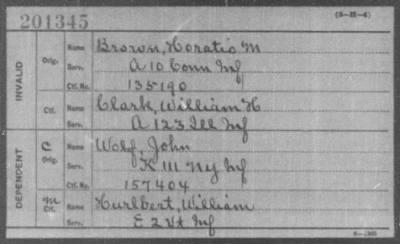 201345
(3-22-6)
INVALID
Orig. Name Brown, Horatio M
Serv. A 10 Conn Inf
Ctf. No. 135190
Ctf. Name Clark, William H
Serv. A 123 Ill Inf
DEPENDENT
C Orig. Name Wolf, John
Serv. K 111 Ny Inf
Ctf. No. 157404
m Ctf. Name Hurlbert, William
Serv. E 2 Vt Inf